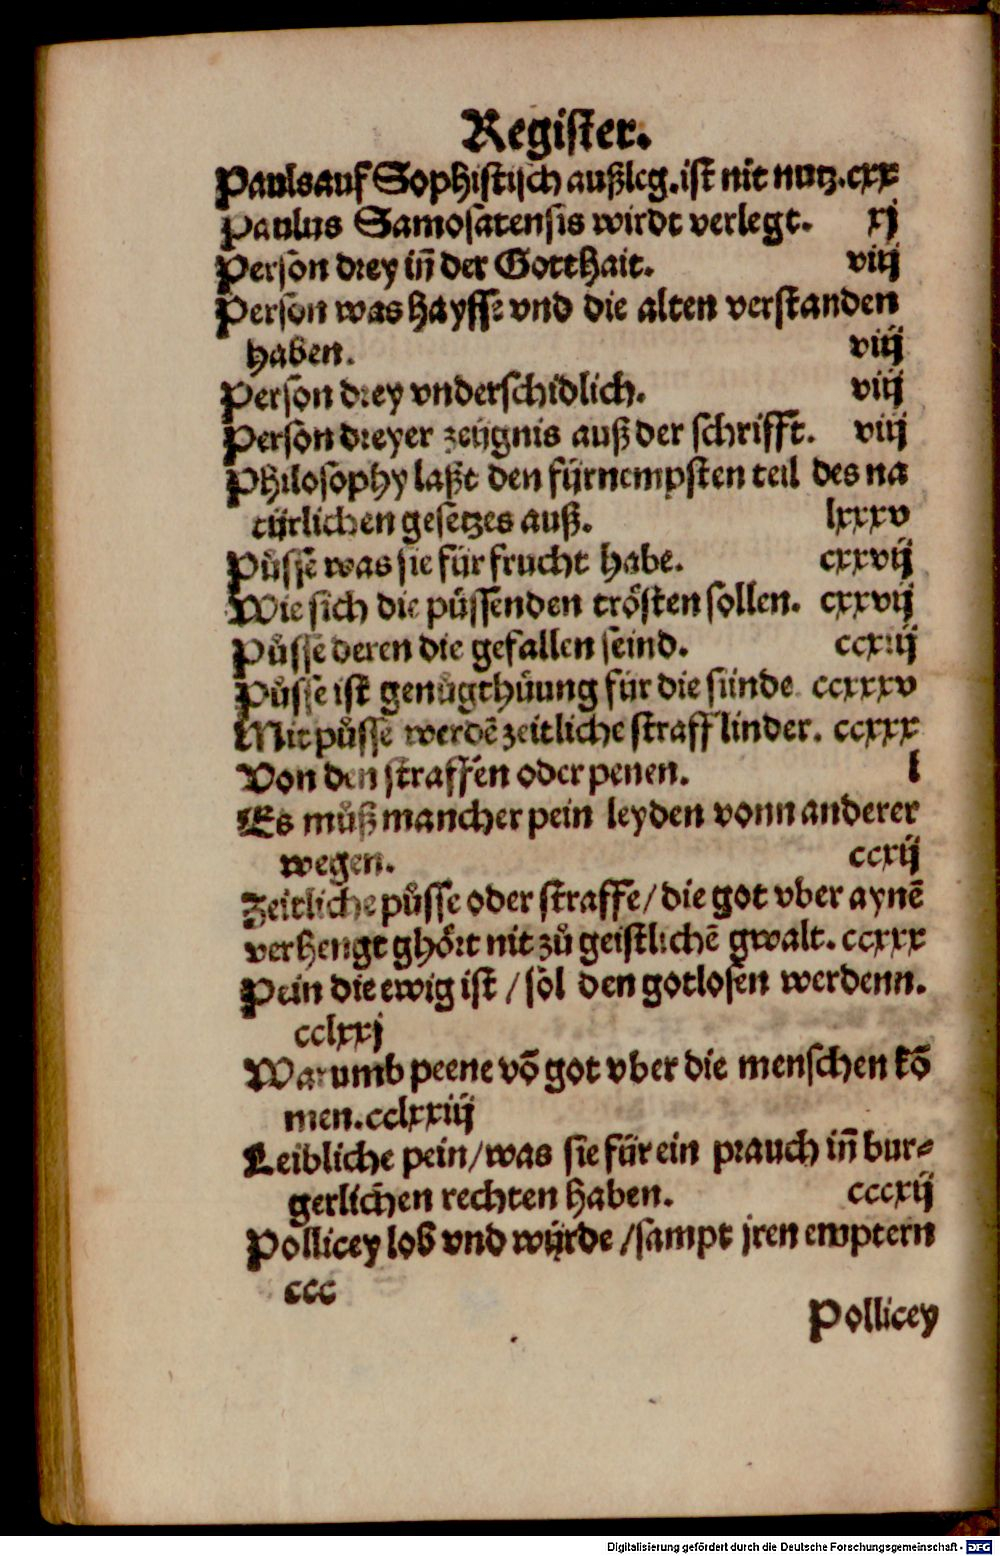 Register.
Pauls auf Sophistisch außleg. ist nit nutz. cxx
Paulus Samosatensis wirdt verlegt. xj
Person drey iñ der Gotthait. viij
Person was haysse vnd die alten verstanden
haben. viij
Person drey vnderschidlich. viij
Person dreyer zeügnis auß der schrifft. viij
Philosophy laßt den fürnempsten teil des na
türlichen gesetzes auß. lxxxv
Půssē was sie für frucht habe. cxxvij
Wie sich die půssenden trösten sollen. cxxvij
Půsse deren die gefallen seind. ccxiij
Půsse ist genůgthüung für die sünde ccxxxv
Mit půsse werdē zeitliche straff linder. ccxxx
Von den straffen oder penen. l
Es můß mancher pein leyden vonn anderer
wegen. ccxij
Zeitliche půsse oder straffe / die got vber aynē
verhengt ghört nit zů geistlichē gwalt. ccxxx
Pein die ewig ist / sol den gotlosen werdenn.
cclxxj
Warumb peene vō got vber die menschen kō
men. cclxxiij
Leibliche pein / was sie für ein prauch iñ bur⸗
gerlichen rechten haben. cccxij
Pollicey lob vnd wÿrde / sampt jren emptern
ccc
Pollicey
Digitalisierung gefördert durch die Deutsche Forschungsgemeinschaft - DFG